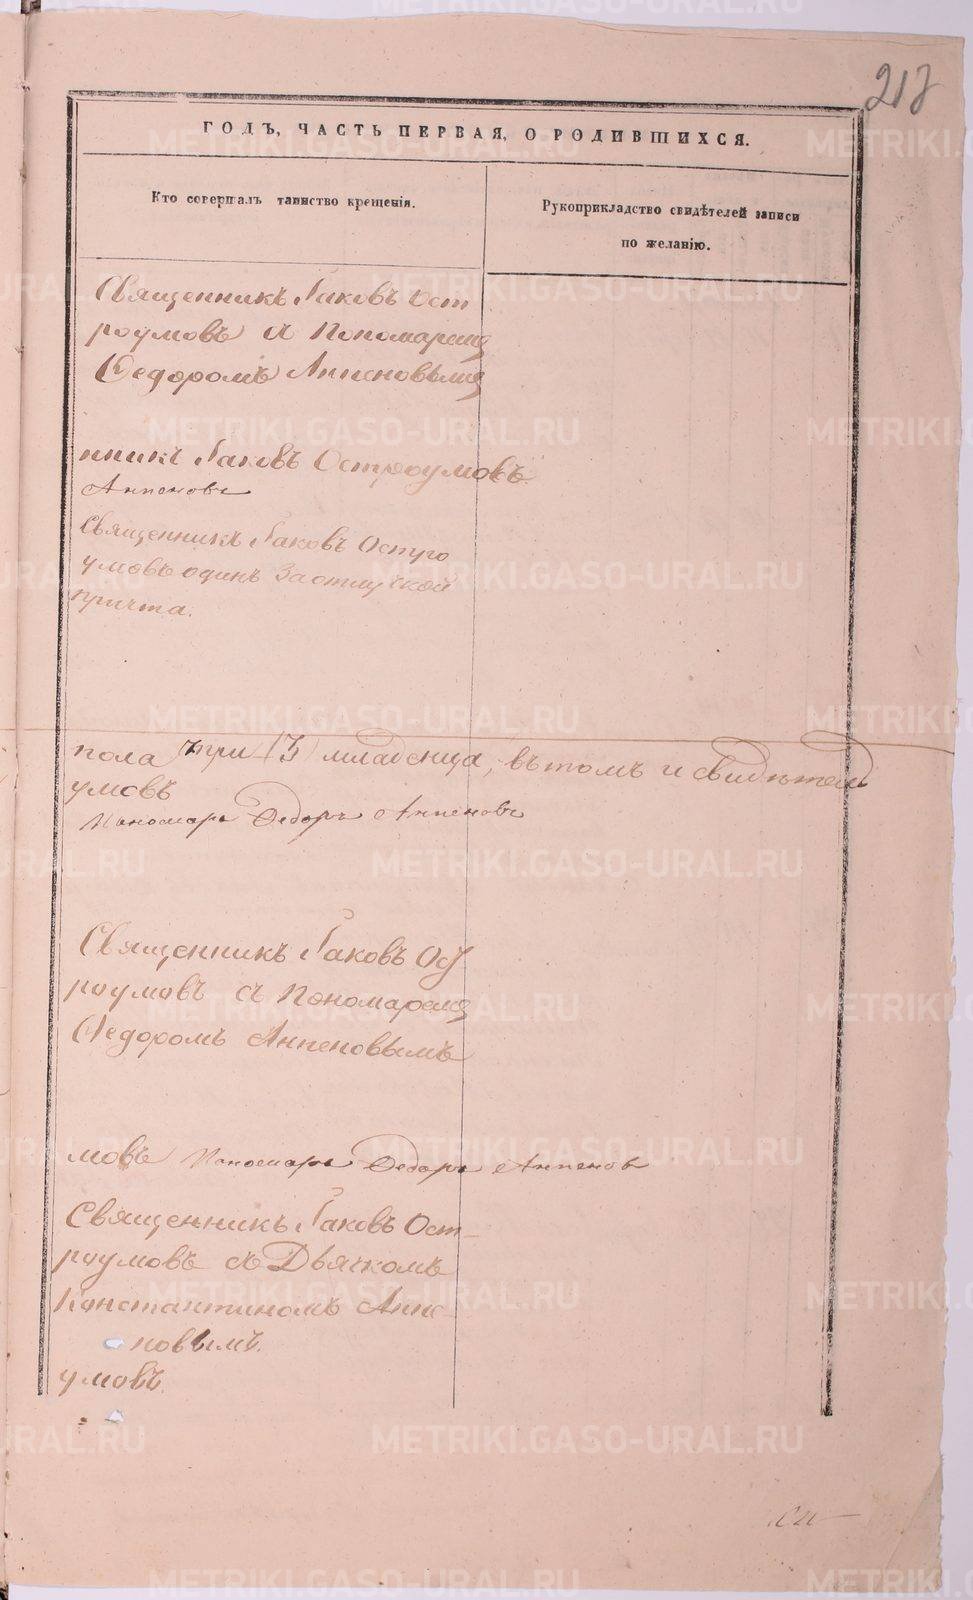 217
ГОДЪ, ЧАСТЬ ПЕРВАЯ, О РОДИВШИХСЯ.
Кто совершалъ таинство крещенія.
Рукоприкладство свидѣтелей записи
по желанію.
Священникъ Іаковъ Ост
роумовъ съ Пономаремъ
Ѳедоромъ Анненовымъ
нникъ Іаковъ Остроумовъ
Анненовъ
Священникъ Іаковъ Остро
умовъ одинъ За отлучкой
причта.
пола три (3) младенца, въ томъ и свидѣтел
умовъ
Пономарь Ѳедоръ Анненовъ
Священникъ Іаковъ Ост
роумовъ съ Пономаремъ
Ѳедоромъ Анненовымъ
мовъ Пономарь Ѳедоръ Анненовъ
Священникъ Іаковъ Ост-
роумовъ съ Дьячкомъ
Константиномъ Анне-
новымъ.
умовъ.
METRIKI.GASO-URAL.RU